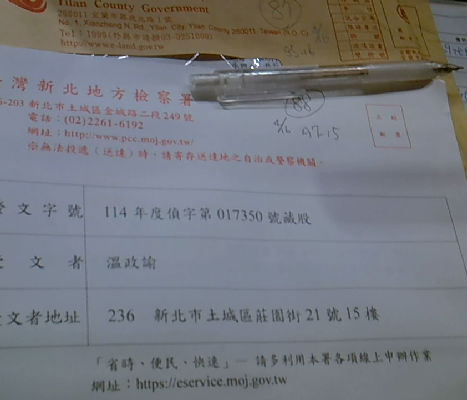 Yilan County Government
260011 宜蘭市縣政北路1號
No. 1, Xianzheng N. Rd., Yilan City, Yilan County 260011, Taiwan (R.O.C.)
http://www.e-land.gov.tw
灣新北地方檢察署
新北市土城區金城路二段249號
電話：(02)2261-6192
網址：http://www.pcc.moj.gov.tw/
※無法投遞（送達）時，請寄存送達地之自治或警察機關。
88
發文字號 114年度偵字第017350號藏股
受文者 溫政諭
受文者地址 236 新北市土城區莊園街21號15樓
「省時、便民、快速」— 請多利用本署各項線上申辦作業
網址：https://eservice.moj.gov.tw